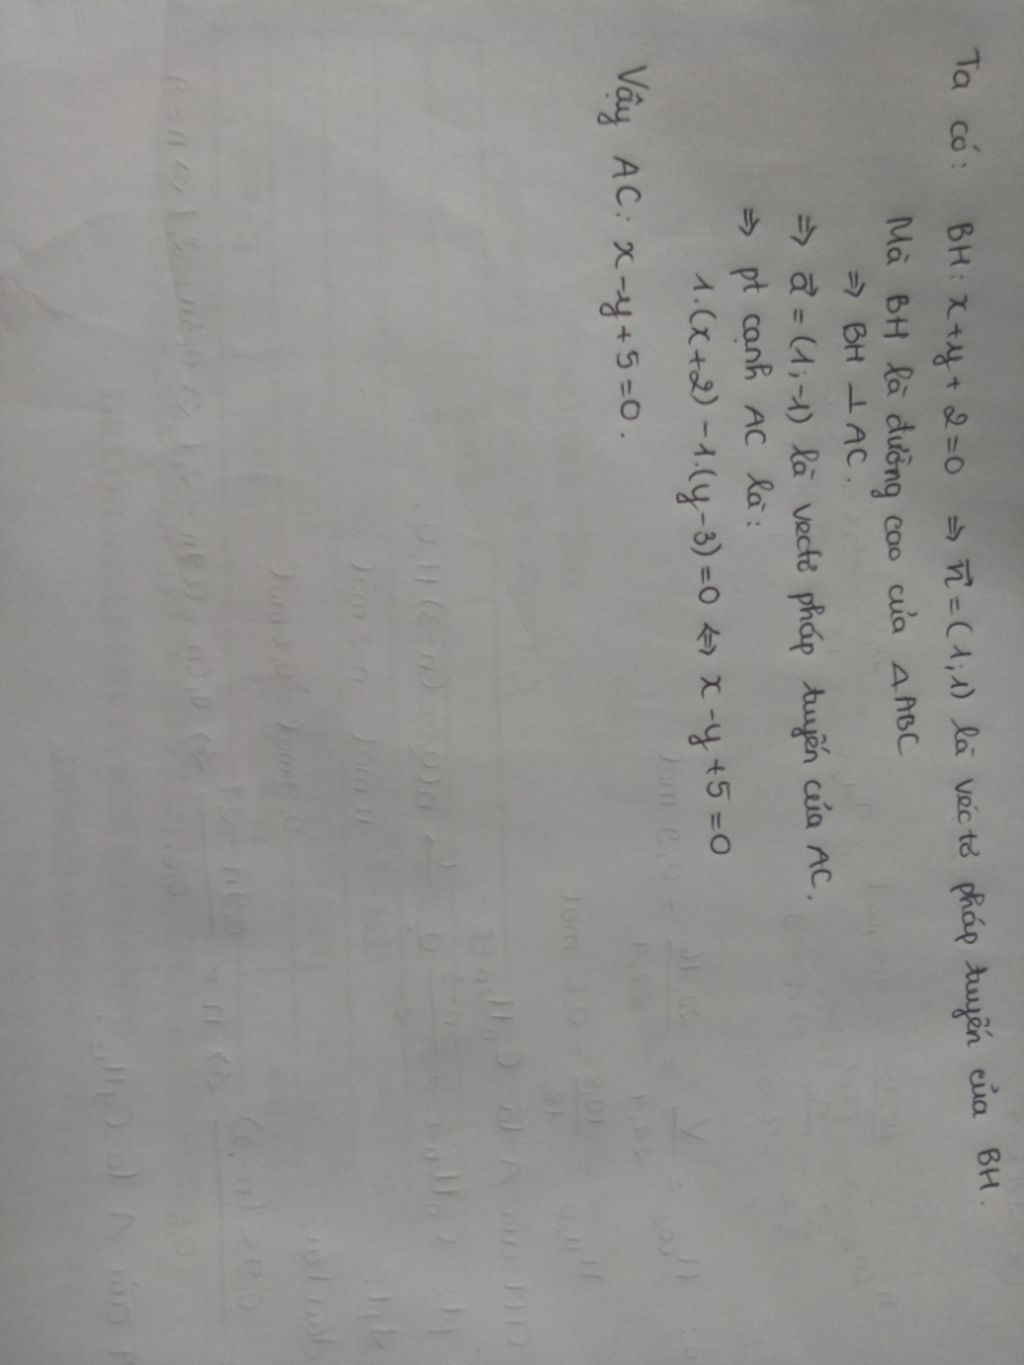 Ta có: BH: x+y+2=0 ⇒ n⃗=(1;1) là véctơ pháp tuyến của BH.
Mà BH là đường cao của ΔABC
⇒ BH ⊥ AC.
⇒ a⃗=(1;-1) là vectơ pháp tuyến của AC.
⇒ pt cạnh AC là:
1.(x+2)-1.(y-3)=0 ⇔ x-y+5=0
Vậy AC: x-y+5=0.